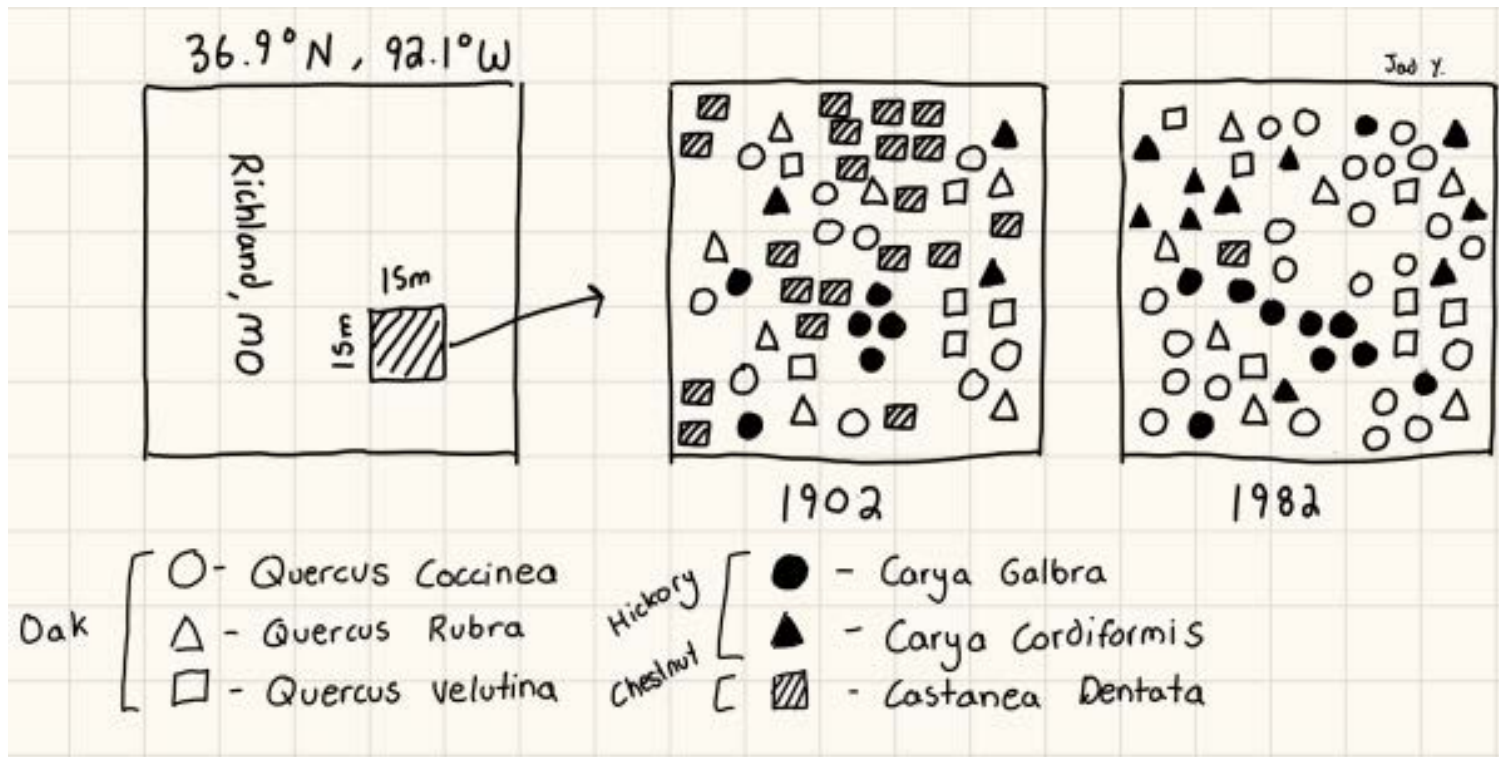 36.9°N, 92.1°W
Jad Y.
Richland, mo
15m
15m
1902
1982
Oak
O- Quercus Coccinea
△ - Quercus Rubra
□ - Quercus Velutina
Hickory
● - Carya Galbra
▲ - Carya Cordiformis
Chestnut
▨ - Castanea Dentata